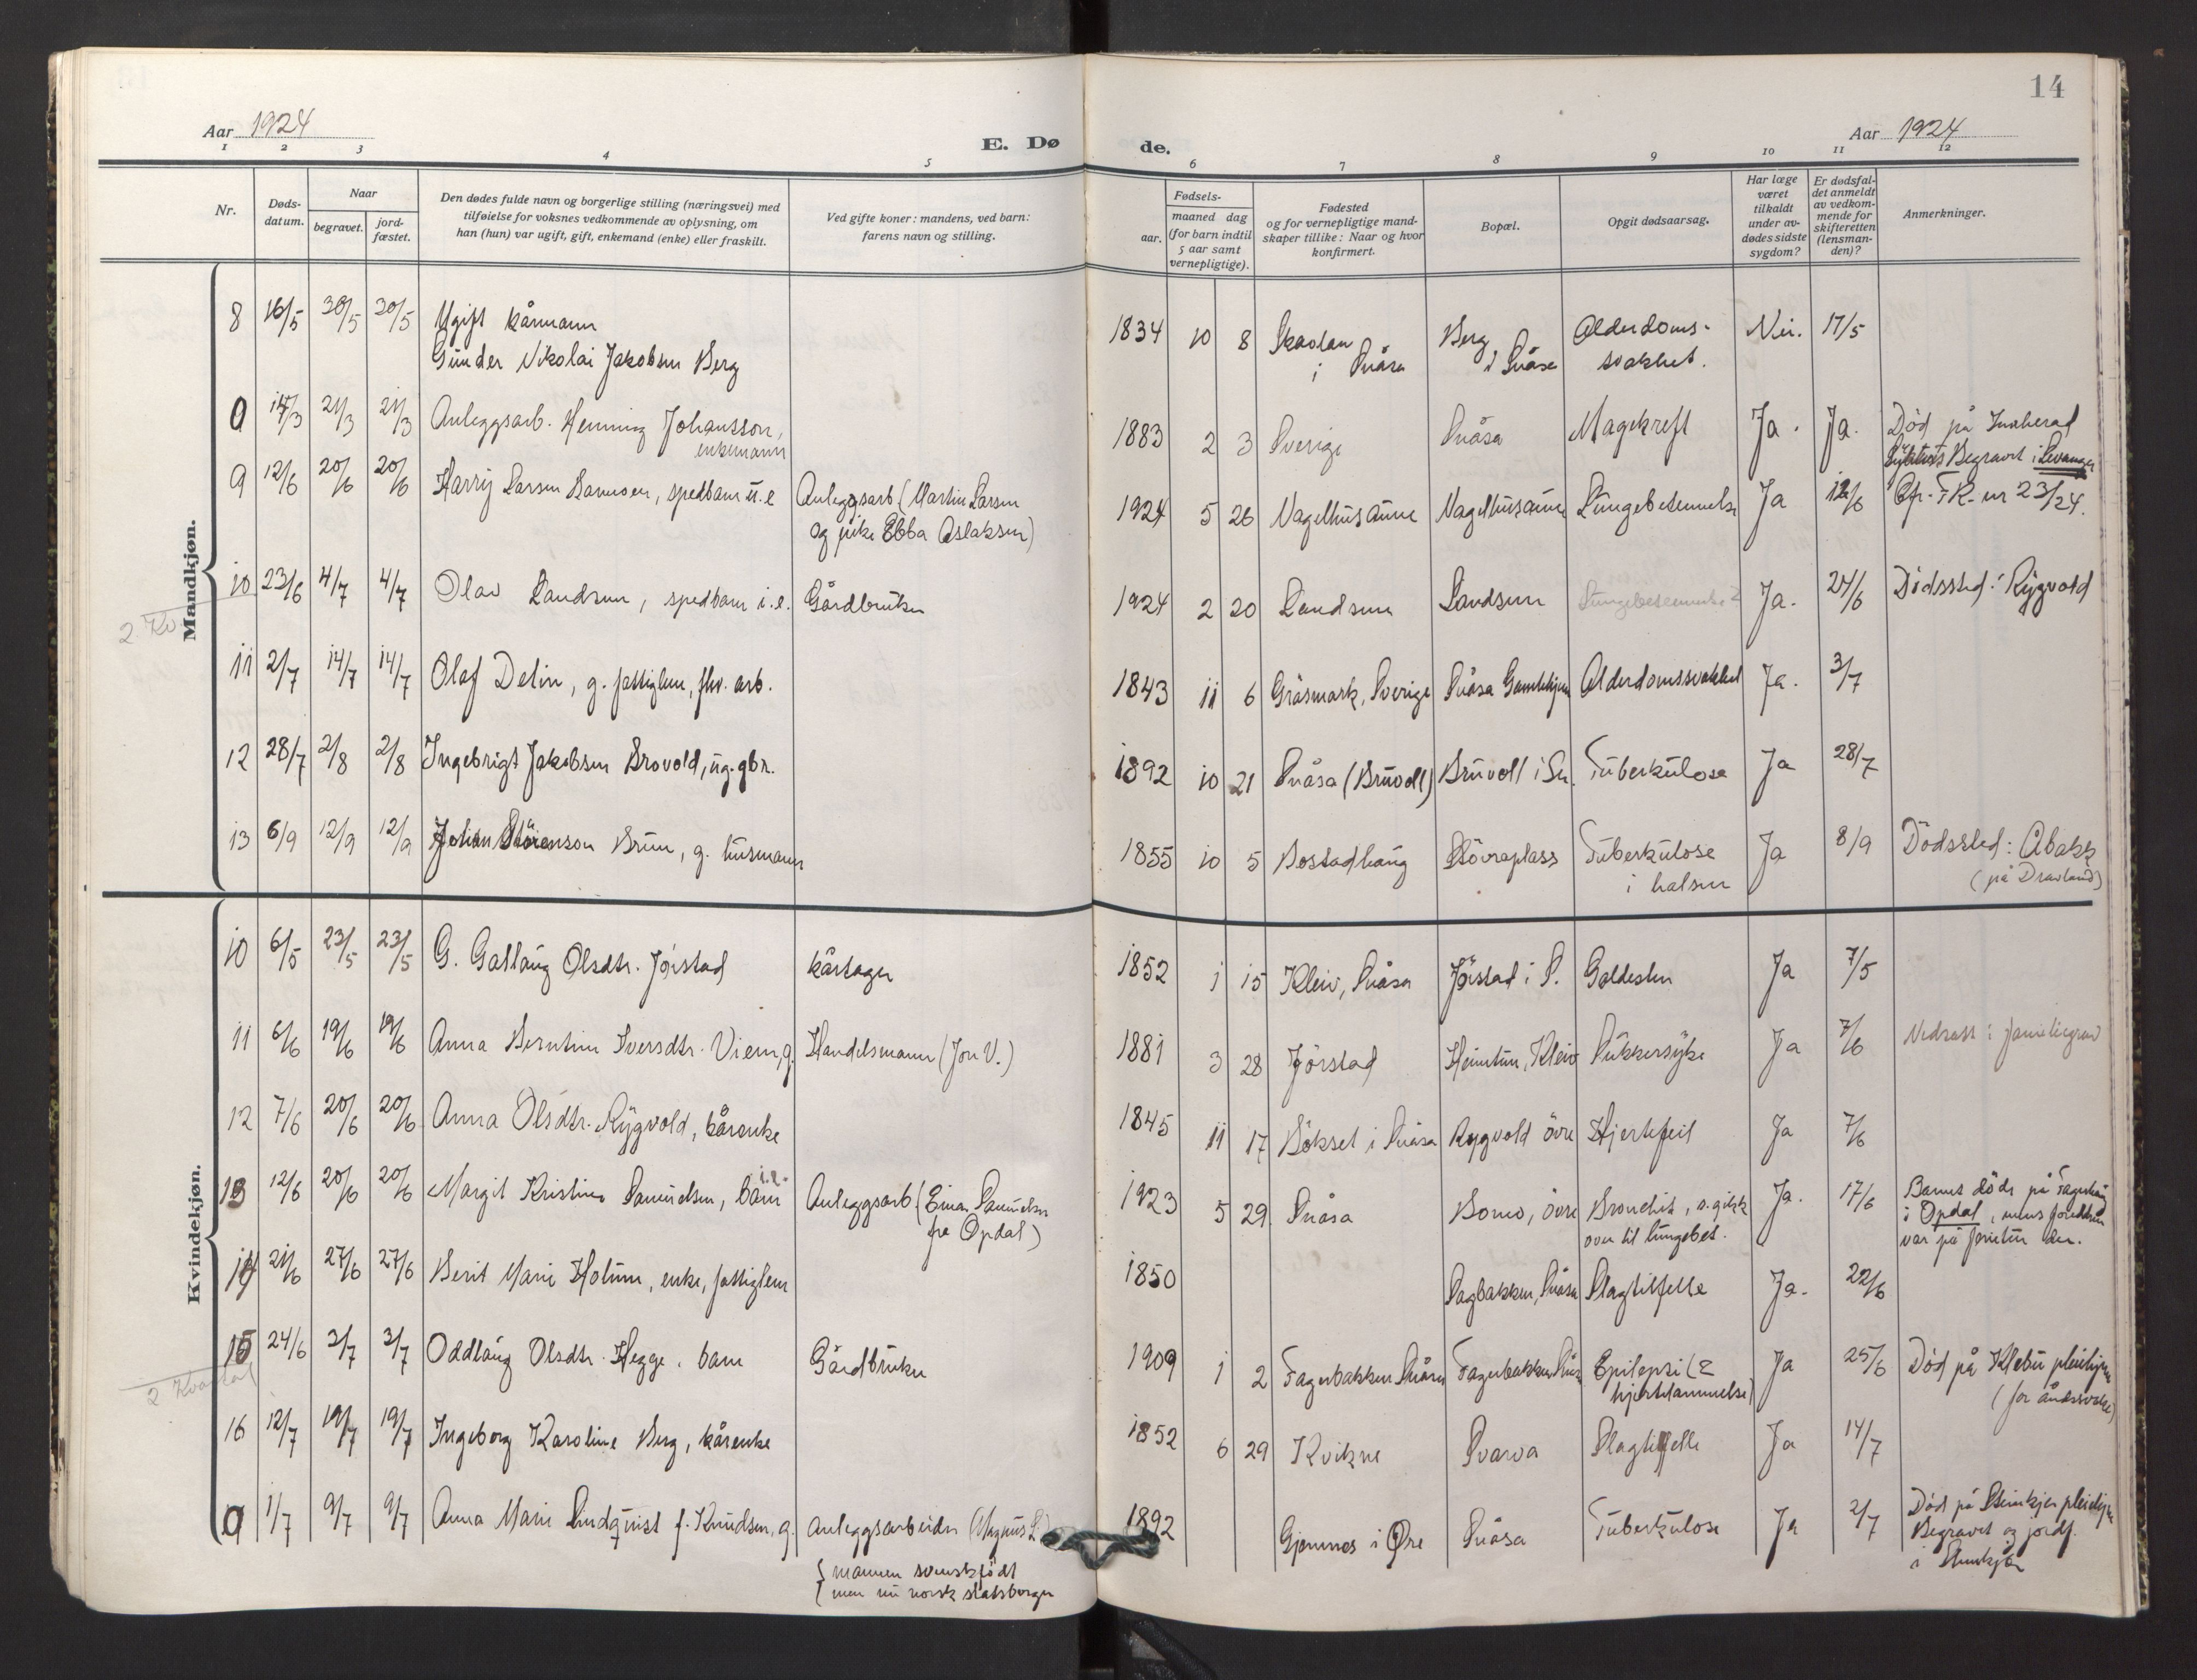 14
Aar 1924
E. Dø
de.
Aar 1924
1 2 3 4 5 6 7 8 9 10 11 12
Nr.
Døds-
datum.
Naar
begravet.
jord-
fæstet.
Den dødes fulde navn og borgerlige stilling (næringsvei) med
tilføielse for voksnes vedkommende av oplysning, om
han (hun) var ugift, gift, enkemand (enke) eller fraskilt.
Ved gifte koner: mandens, ved barn:
farens navn og stilling.
Fødsels-
aar.
maaned dag
(for barn indtil
5 aar samt
vernepligtige).
Fødested
og for vernepligtige mand-
skaper tillike: Naar og hvor
konfirmert.
Bopæl.
Opgit dødsaarsag.
Har læge
været
tilkaldt
under av-
dødes sidste
sygdom?
Er dødsfal-
det anmeldt
av vedkom-
mende for
skifteretten
(lensman-
den)?
Anmerkninger.
Mandkjøn.
8 16/5 20/5 20/5 Ugift kårmann
Gunder Nikolai Jakobsen Berg
1834 10 8 Skavlan
i Snåsa
Berg
i Snåsa
Alderdoms-
svakhet.
Nei. 17/5
0 14/3 21/3 21/3 Anleggsarb. Henning Johansson,
enkemann
1883 2 3 Sverige Snåsa Magekreft Ja. Ja. Död på Innherad
Sykehus Begravet i Levanger
9 12/6 20/6 20/6 Harry Larsen, spedbarn u.e Anleggsarb (Martin Larsen
og pike Ebba Aslaksen)
1924 5 26 Nagelhusaune Nagelhusaune Lungebetennelse Ja 12/6 Cfr. FR. nr 23/24.
10 23/6 4/7 4/7 Olav Landsem, spedbarn i.e. Gårdbruker
1924 2 20 Landsem Landsem Lungebetennelse? Ja. 24/6 Dödssted: Rygvold
2 Kv.
11 2/7 14/7 14/7 Olaf Delin, g. fattiglem, fhv. arb.
1843 11 6 Gräsmark, Sverige Snåsa Gamlehjem Alderdomssvakhet Ja. 3/7
12 28/7 2/8 2/8 Ingebrigt Jakobsen Brovold, ug. gbr.
1892 10 21 Snåsa (Bruvoll) Bruvoll i Sn. Tuberkulose Ja 28/7
13 6/9 12/9 12/9 Johan Störenson Brun, g. husmann
1855 10 5 Bostadhaug Störeplass Tuberkulose
i halsen
Ja 8/9 Dödssted: Abakk
(på Dravland)
Kvindekjøn.
10 6/5 23/5 23/5 G. Gallaug Olsdtr. Jörstad kårtager
1852 1 15 Kleiv, Snåsa Jörstad i S. Galdesten Ja 7/5
11 6/6 19/6 19/6 Anna Berntine Iversdtr. Viem, g. Handelsmann (Jon V.)
1881 3 28 Jörstad Heimtun, Kleiv Sukkersyke Ja 7/6 Nedsatt i familiegrav
12 7/6 20/6 20/6 Anna Olsdtr. Rygvold, kårenke
1845 11 17 Bökset i Snåsa Rygvold övre Hjertefeil Ja 7/6
13 12/6 20/6 20/6 Margit Kristine Samuelsen, barn i.e. Anleggsarb (Einar Samuelsen
fra Opdal)
1923 5 29 Snåsa Bomo, övre Bronchit, s. gikk
over til lungebet.
Ja. 17/6 Barnet döde på Fagerhaug
i Opdal, mens foreldrene
var på ferietur der.
14 21/6 27/6 27/6 Berit Marie Holum, enke, fattiglem
1850 Sagbakken, Snåsa Slagtilfelle Ja. 22/6
15 24/6 3/7 3/7 Oddlaug Olsdtr. Hegge, barn Gårdbruker
1909 1 2 Fagerbakken Snåsa Fagerbakken Snåsa Epilepsi (?
hjertelammelse)
Ja 25/6 Död på Klebu pleiehjem
(for åndssvake)
2 Kvartal
16 12/7 19/7 19/7 Ingeborg Karoline Berg, kårenke
1852 6 29 Kvikne Svarva Slagtilfelle Ja 14/7
0 1/7 9/7 9/7 Anna Marie Lindqvist f. Knudsen, g. anleggsarbeider (Magnus L.)
{mannen svenskfödt
men nu norsk statsborger
1892 Gjemnes i Öre Snåsa Tuberkulose Ja 2/7 Död på Steinkjer pleiehjem
Begravet og jordf.
i Steinkjer